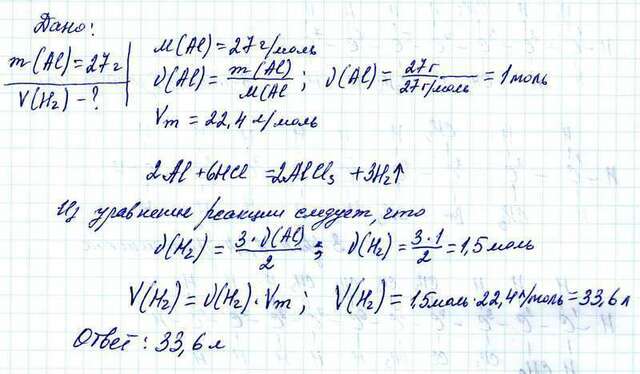 Дано:
m(Al)=27г
V(H₂)-?
M(Al)=27г/моль
ν(Al)=m(Al)/M(Al ; ν(Al)=27г/27г/моль=1моль
Vm=22,4л/моль
2Al+6HCl=2AlCl₃+3H₂↑
Из уравнения реакции следует, что
ν(H₂)=3·ν(Al)/2; ν(H₂)=3·1/2=1,5моль
V(H₂)=ν(H₂)·Vm; V(H₂)=1,5моль·22,4л/моль=33,6л
Ответ: 33,6л